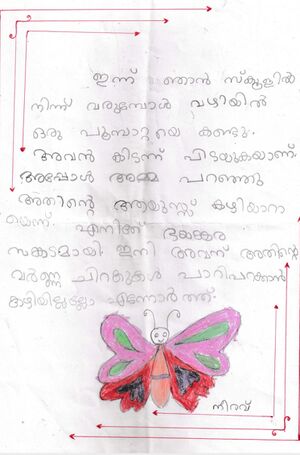 ഇന്ന് ഞാൻ സ്കൂളിൽ
നിന്ന് വരുമ്പോൾ വഴിയിൽ
ഒരു പൂമ്പാറ്റയെ കണ്ടു.
അവൻ കിടന്ന് പിടയുകയാണ്.
അപ്പോൾ അമ്മ പറഞ്ഞു
അതിന്റെ ആയുസ്സ് കഴിയാറാ
യെന്ന്. എനിക്ക് ഭയങ്കര
സങ്കടമായി. ഇനി അവന് അതിന്റെ
വർണ്ണ ചിറകുകൾ പാറിപറക്കാൻ
കഴിയില്ലല്ലോ എന്നോർത്ത്.
നിറവ്